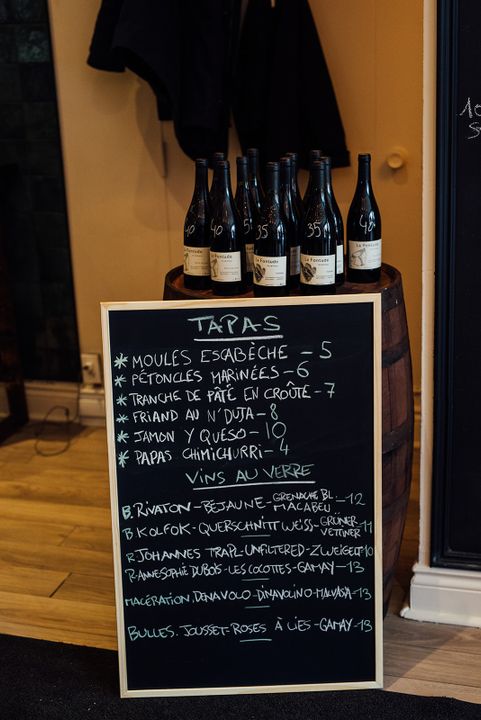 40
5
35
35
40
La Fontude
La Fontude
La Fontude
TAPAS
* MOULES ESCABÈCHE - 5
* PÉTONCLES MARINÉES - 6
* TRANCHE DE PÂTÉ EN CROÛTE - 7
* FRIAND AU N'DUJA - 8
* JAMON Y QUESO - 10
* PAPAS CHIMICHURRI - 4
VINS AU VERRE
B. RIVATON - BEJAUNE - GRENACHE BL MACABEU - 12
B KOLFOK - QUERSCHNITT WEISS - GRÜNER VETTINER - 11
R JOHANNES TRAPL - UNFILTERED - ZWEIGELT 10
R - ANNE SOPHIE DUBOIS - LES COCOTTES - GAMAY - 13
MACÉRATION. DENAVOLO - DINAVOLINO - MALVASIA - 13
BULLES. JOUSSET - ROSES À LIES - GAMAY - 13